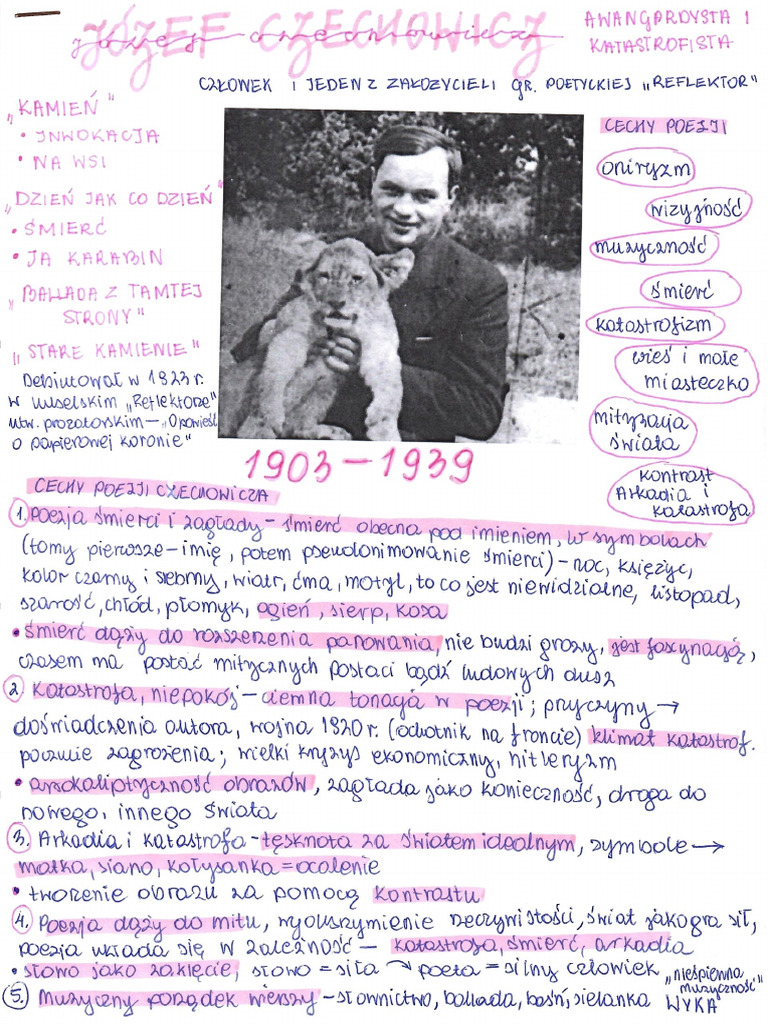 JÓZEF CZECHOWICZ
józef czechowicz
AWANGARDYSTA I
KATASTROFISTA
CZŁOWEK I JEDEN Z ZAŁOŻYCIELI GR. POETYCKIEJ „REFLEKTOR"
„KAMIEŃ"
• INWOKACJA
• NA WSI
„DZIEŃ JAK CO DZIEŃ"
• ŚMIERĆ
• JA KARABIN
„BALLADA Z TAMTEJ
STRONY"
„STARE KAMIENIE"
Debiutował w 1923 r.
w lubelskim „Reflektorze"
utw. prozatorskim – „Opowieść
o papierowej koronie"
CECHY POEZJI
oniryzm
wizyjność
muzyczność
śmierć
katastrofizm
wieś i małe
miasteczko
mityzacja
świata
kontrast
Arkadia i
katastrofa
1903 – 1939
CECHY POEZJI CZECHOWICZA
1. Poezja śmierci i zagłady – śmierć obecna pod imieniem, w symbolach
(tomy pierwsze – imię, potem pseudonimowanie śmierci) – noc, księżyc,
kolor czarny i srebrny, wiatr, ćma, motyl, to co jest niewidzialne, listopad,
szarość, chłód, płomyk, ogień, sierp, kosa
• śmierć dąży do rozszerzenia panowania, nie budzi grozy, jest fascynacją,
czasem ma postać mitycznych postaci bądź ludowych dusz
2. Katastrofa, niepokój – ciemna tonacja w poezji; przyczyny →
doświadczenia autora, wojna 1920 r. (ochotnik na froncie) klimat katastrof.
poczucie zagrożenia; wielki kryzys ekonomiczny, hitleryzm
• apokaliptyczność obrazów, zagłada jako konieczność, droga do
nowego, innego świata
3. Arkadia i katastrofa – tęsknota za światem idealnym, symbole →
matka, siano, kołysanka = ocalenie
• tworzenie obrazu za pomocą kontrastu
4. Poezja dąży do mitu, wyolbrzymienie rzeczywistości, świat jako gra sił,
poezja układa się w zależność – katastrofa, śmierć, arkadia
• słowo jako zaklęcie, słowo = siła → poeta = silny człowiek
5. Muzyczny porządek wierszy – słownictwo, ballada, baśń, sielanka
„nieśpiewna
muzyczność"
WYKA